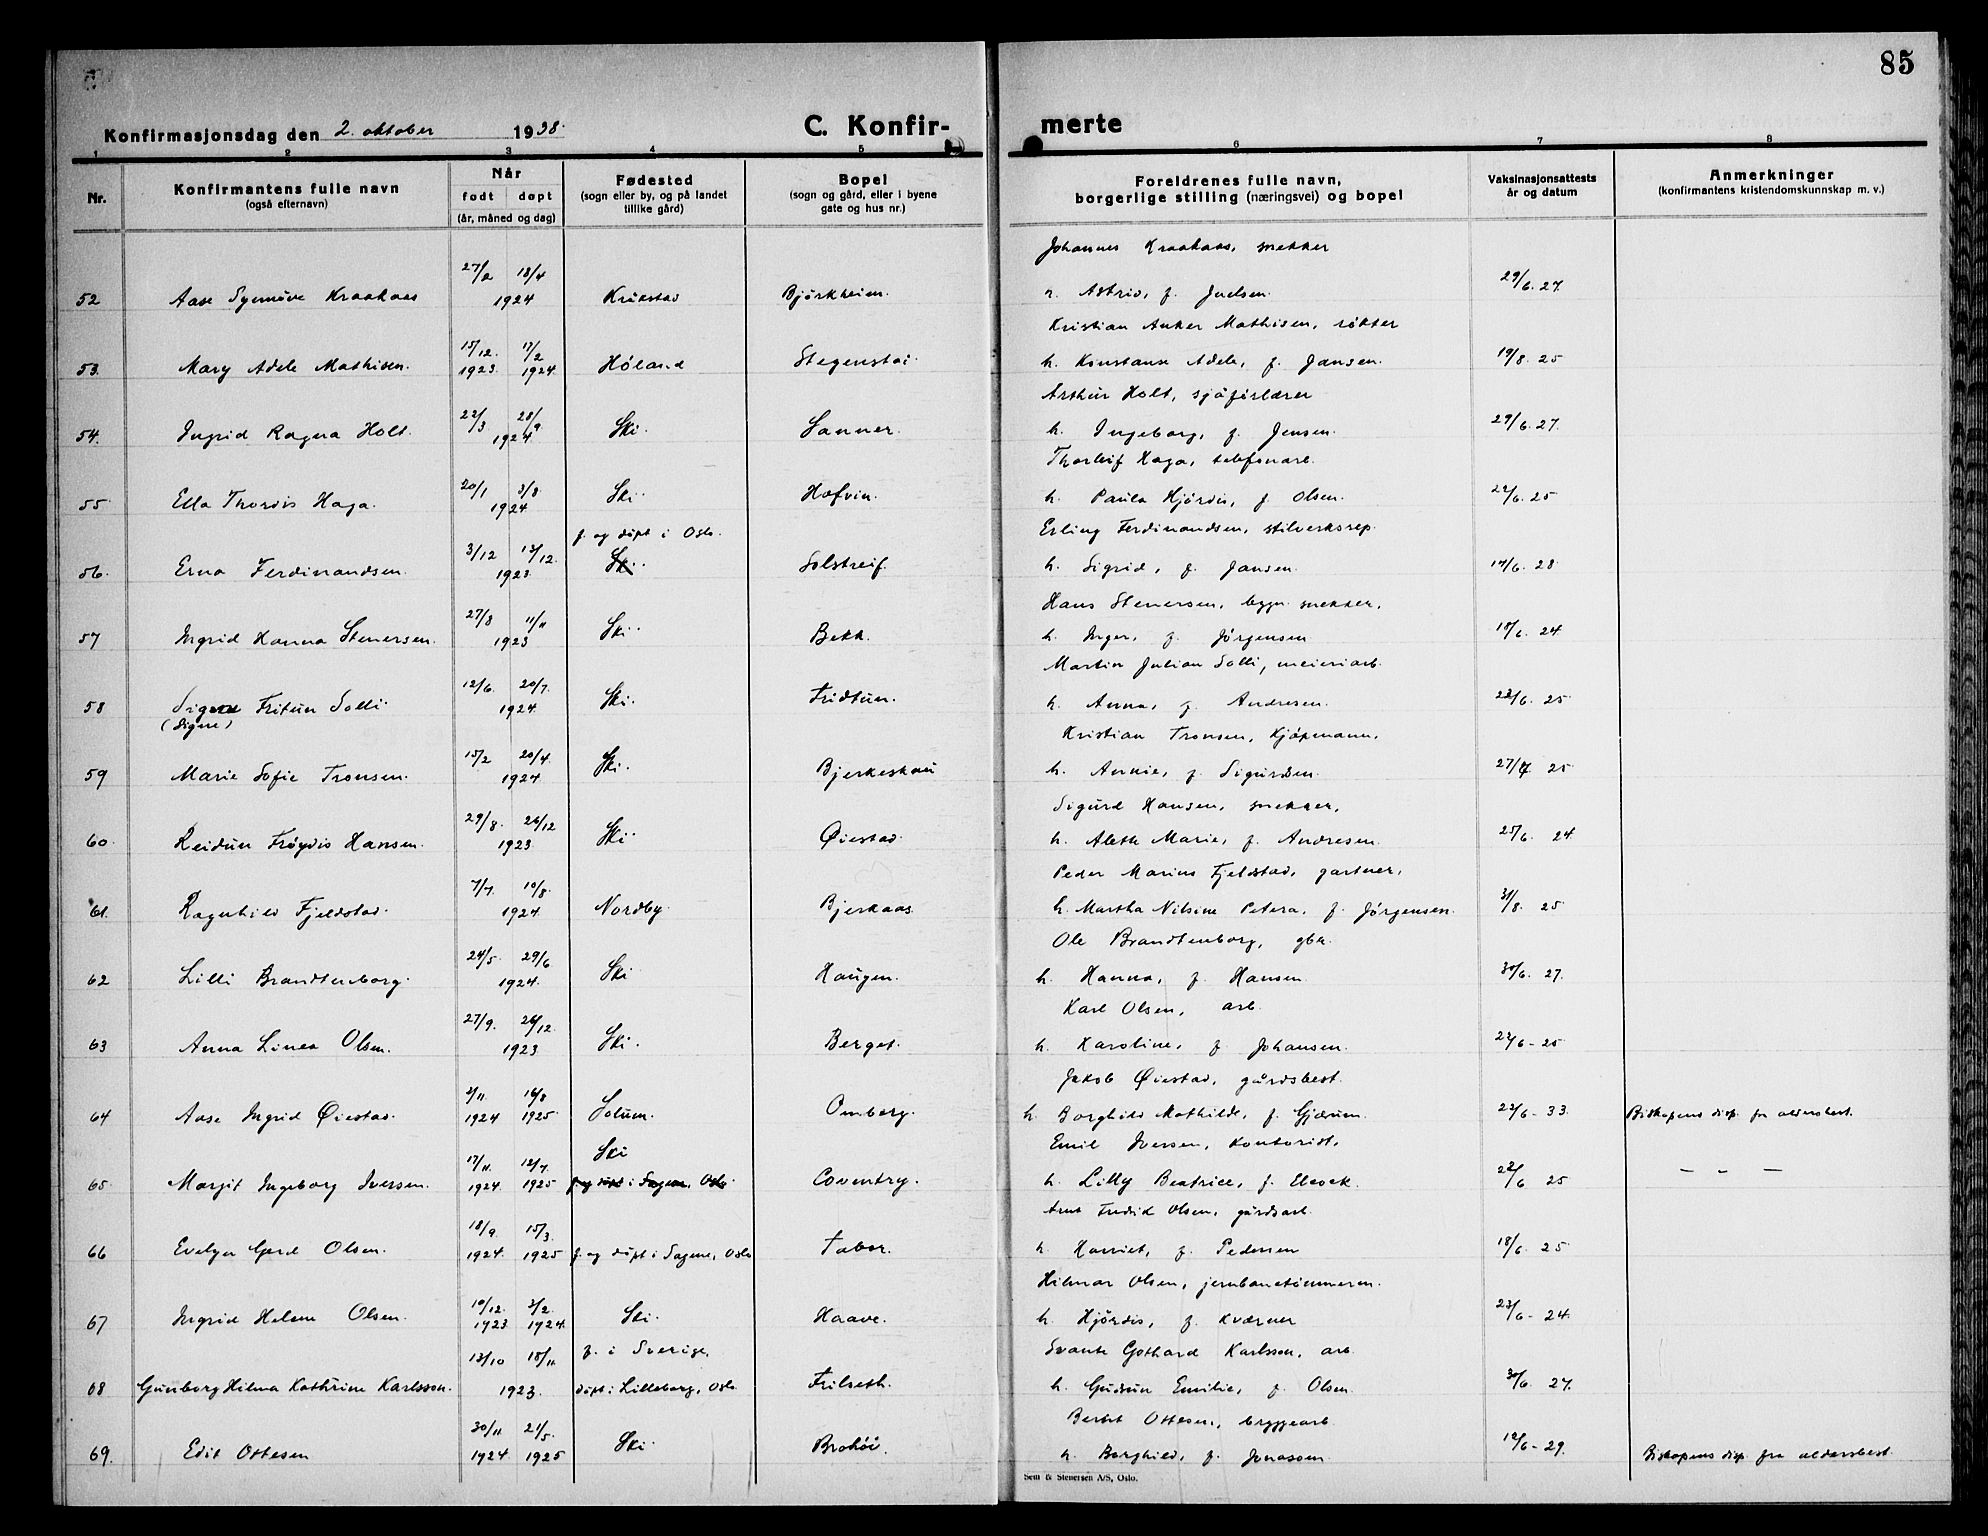 85
Konfirmasjonsdag den 2. oktober 1938.
C. Konfir-
merte
1 2 3 4 5 6 7 8
Nr.
Konfirmantens fulle navn
(også efternavn)
Når
født døpt
(år, måned og dag)
Fødested
(sogn eller by, og på landet
tillike gård)
Bopel
(sogn og gård, eller i byene
gate og hus nr.)
Foreldrenes fulle navn,
borgerlige stilling (næringsvei) og bopel
Vaksinasjonsattests
år og datum
Anmerkninger
(konfirmantens kristendomskunnskap m. v.)
Johannes Kraakaas, snekker
27/2 18/4
52 Aase Synnøve Kraakaas 1924 Kråkstad Bjørkheim. h. Astrid, f. Juelsen. 29/6. 27.
Kristian Anker Mathisen, røkter
15/12. 17/2
53. Mary Adele Mathisen. 1923 1924 Høland Stegenstøi h. Konstanse Adele, f. Jansen. 19/8. 25
Arthur Holt, sjåførlærer
22/3 28/9
54. Ingrid Ragna Holt. 1924 Ski. Sanner. h. Ingeborg, f. Jensen. 29/6. 27.
Thorleif Haga, telefonarb.
20/1 3/8
55 Ella Thordis Haga. 1924 Ski. Hofvin. h. Paula Hjørdis, f. Olsen. 22/6. 25
Erling Ferdinandsen, skilverksrep.
f. og døpt i Oslo.
3/12 13/12.
56. Erna Ferdinandsen. 1923. Ski. Solstreif. h. Sigrid, f. Jansen. 17/6. 28
Hans Stenersen, bygn. snekker,
27/8 11/11
57 Ingrid Hanna Stenersen. 1923 Ski. Bekk. h. Inger, f. Jørgensen 18/6. 24
Martin Julian Solli, meieriarb.
12/6. 20/7.
58 Signe Fritun Solli. 1924. Ski. Fridtun. h. Anna, f. Andresen. 22/6. 25
(Signe)
Kristian Tronsen, Kjøpmann.
15/2 20/4.
59 Marie Sofie Tronsen. 1924 Ski. Bjerkeskau h. Annie, f. Sigurdsen. 27/7 25
Sigurd Hansen, snekker,
29/8. 26/12
60. Reidun Frøydis Hansen. 1923. Ski Øiestad. h. Aleth Marie, f. Andresen. 25/6. 24
Peder Marius Fjeldstad, gartner,
7/7. 10/8.
61. Ragnhild Fjeldstad. 1924 Nordby. Bjerkaas. h. Martha Nilsine Petera, f. Jørgensen. 31/8. 25
Ole Brandtenborg, gbr.
24/5. 29/6
62 Lilli Brandtenborg. 1924. Ski Haugen. h. Hanna, f. Hansen. 30/6. 27.
Karl Olsen, arb.
27/9. 26/12.
63 Anna Linea Olsen. 1923. Ski. Berget. h. Karoline, f. Johansen. 22/6 - 25
Jakob Øiestad, gårdsbest.
2/11. 16/8
64 Aase Ingrid Øiestad. 1924 1925 Solum. Omberg. h. Borghild Mathilde, f. Gjærum. 22/6 - 33. Biskopens disp. fra aldersbest.
Emil Iversen, Kontorist,
Ski
17/11. 12/7.
65. Margit Ingeborg Iversen. 1924. 1925 f. og døpt i Sagene, Oslo. Coventry. h. Lilly Beatrice, f. Elcock. 22/6 25 – „ –
Arnt Fredrid Olsen, gårdsarb.
18/9. 15/3.
66 Evelyn Gerd Olsen. 1924. 1925 f. og døpt i Sagene, Oslo Tabor. h. Harriet, f. Pedersen 18/6. 25
Hilmar Olsen, jernbanetømmerm.
10/12. 3/2.
67 Ingrid Helene Olsen. 1923 1924. Ski. Haave. h. Hjørdis, f. Kværner 23/6 - 24.
Svante Gothard Karlsson, arb.
13/10 18/11 f. i Sverige,
68 Gunborg Hilma Kathrine Karlsson. 1923. døpt i Lilleborg, Oslo. Frilseth. h. Gudrun Emilie, f. Olsen. 30/6. 27.
Bernt Ottesen, bryggearb.
30/11 21/5.
69. Edit Ottesen 1924 1925 Ski. Brohøi. h. Borghild, f. Jonassen. 12/6 - 29. Biskopens disp. fra aldersbest.
Sem & Stenersen A/S, Oslo.